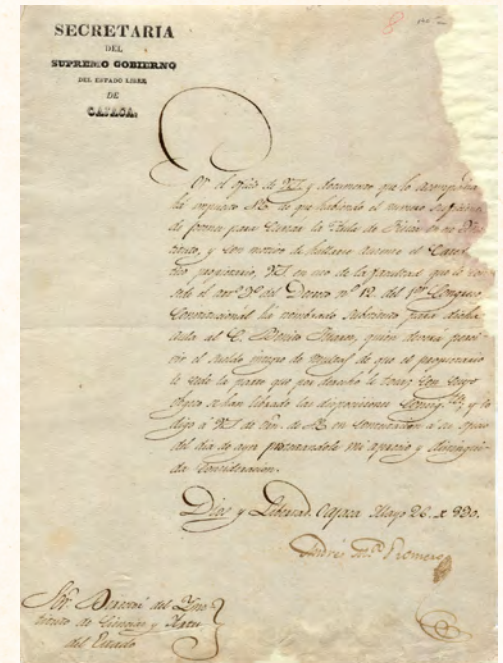 SECRETARIA
DEL
SUPREMO GOBIERNO
DEL ESTADO LIBRE
DE
OAJACA.
Por el oficio de VS. y documento que lo acompaña
ha impuesto de que habiendo el numero suficiente
de para cursar la Catedra de Fisica en ese Ins
tituto, y con motivo de hallarse ausente el Catedra
tico propietario, VS. en uso de la facultad que le con
cede el artº 3º del Decreto nº 12. del 1er Congreso
Constitucional ha nombrado substituto para dicha
aula al C. Benito Juarez, quien deverá perci
vir el sueldo integro de de que el propietario
le cede la parte que por derecho le toca; con cuyo
objeto se han librado las disposiciones y lo
digo a VS. de en contestacion a su oficio
del dia de ayer mi aprecio y distingui
da consideracion.
Dios y Libertad. Oajaca Mayo 26. 830.
Andrés Mª Romero
Sor. Director del Ins
tituto de Ciencias y Artes
del Estado